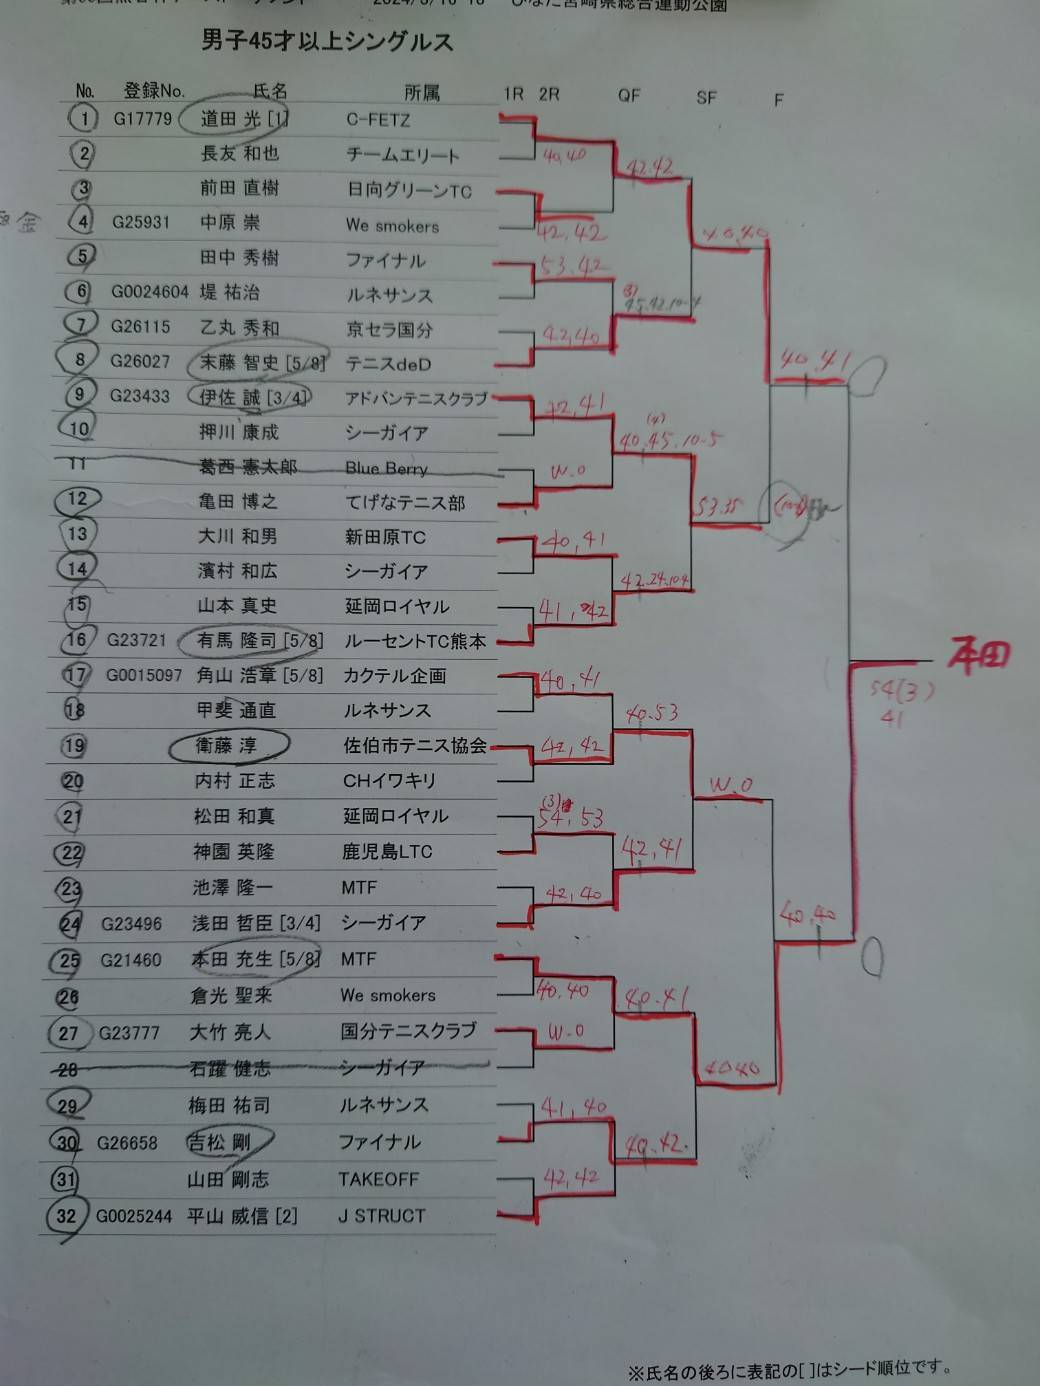 男子45才以上シングルス
No. 登録No. 氏名 所属 1R 2R QF SF F
1 G17779 道田 光 [1] C-FETZ
2 長友 和也 チームエリート 40,40 42.42
3 前田 直樹 日向グリーンTC
金
4 G25931 中原 崇 We smokers 42,42
5 田中 秀樹 ファイナル 53.42
6 G0024604 堤 祐治 ルネサンス
7 G26115 乙丸 秀和 京セラ国分 42,40
8 G26027 末藤 智史 [5/8] テニスdeD 40.41
9 G23433 伊佐 誠 [3/4] アドバンテニスクラブ
10 押川 康成 シーガイア 40.45.10-5
11 葛西 憲太郎 Blue Berry W.O
12 亀田 博之 てげなテニス部 53.35
13 大川 和男 新田原TC 40,41
14 濱村 和広 シーガイア 42.24.10-4
15 山本 真史 延岡ロイヤル 41, 42
16 G23721 有馬 隆司 [5/8] ルーセントTC熊本
本田
17 G0015097 角山 浩章 [5/8] カクテル企画 40,41
54(3)
41
18 甲斐 通直 ルネサンス 40.53
19 衛藤 淳 佐伯市テニス協会 42,42
20 内村 正志 CHイワキリ W.O
(3)
21 松田 和真 延岡ロイヤル 54, 53
22 神園 英隆 鹿児島LTC 42,41
23 池澤 隆一 MTF 42,40
24 G23496 浅田 哲臣 [3/4] シーガイア 40,40
25 G21460 本田 充生 [5/8] MTF
26 倉光 聖来 We smokers 40.40 40.41
27 G23777 大竹 亮人 国分テニスクラブ W.O
28 石躍 健志 シーガイア 4040
29 梅田 祐司 ルネサンス 41,40
30 G26658 吉松 剛 ファイナル 40.42.
31 山田 剛志 TAKEOFF 42,42
32 G0025244 平山 威信 [2] J STRUCT
※氏名の後ろに表記の[ ]はシード順位です。